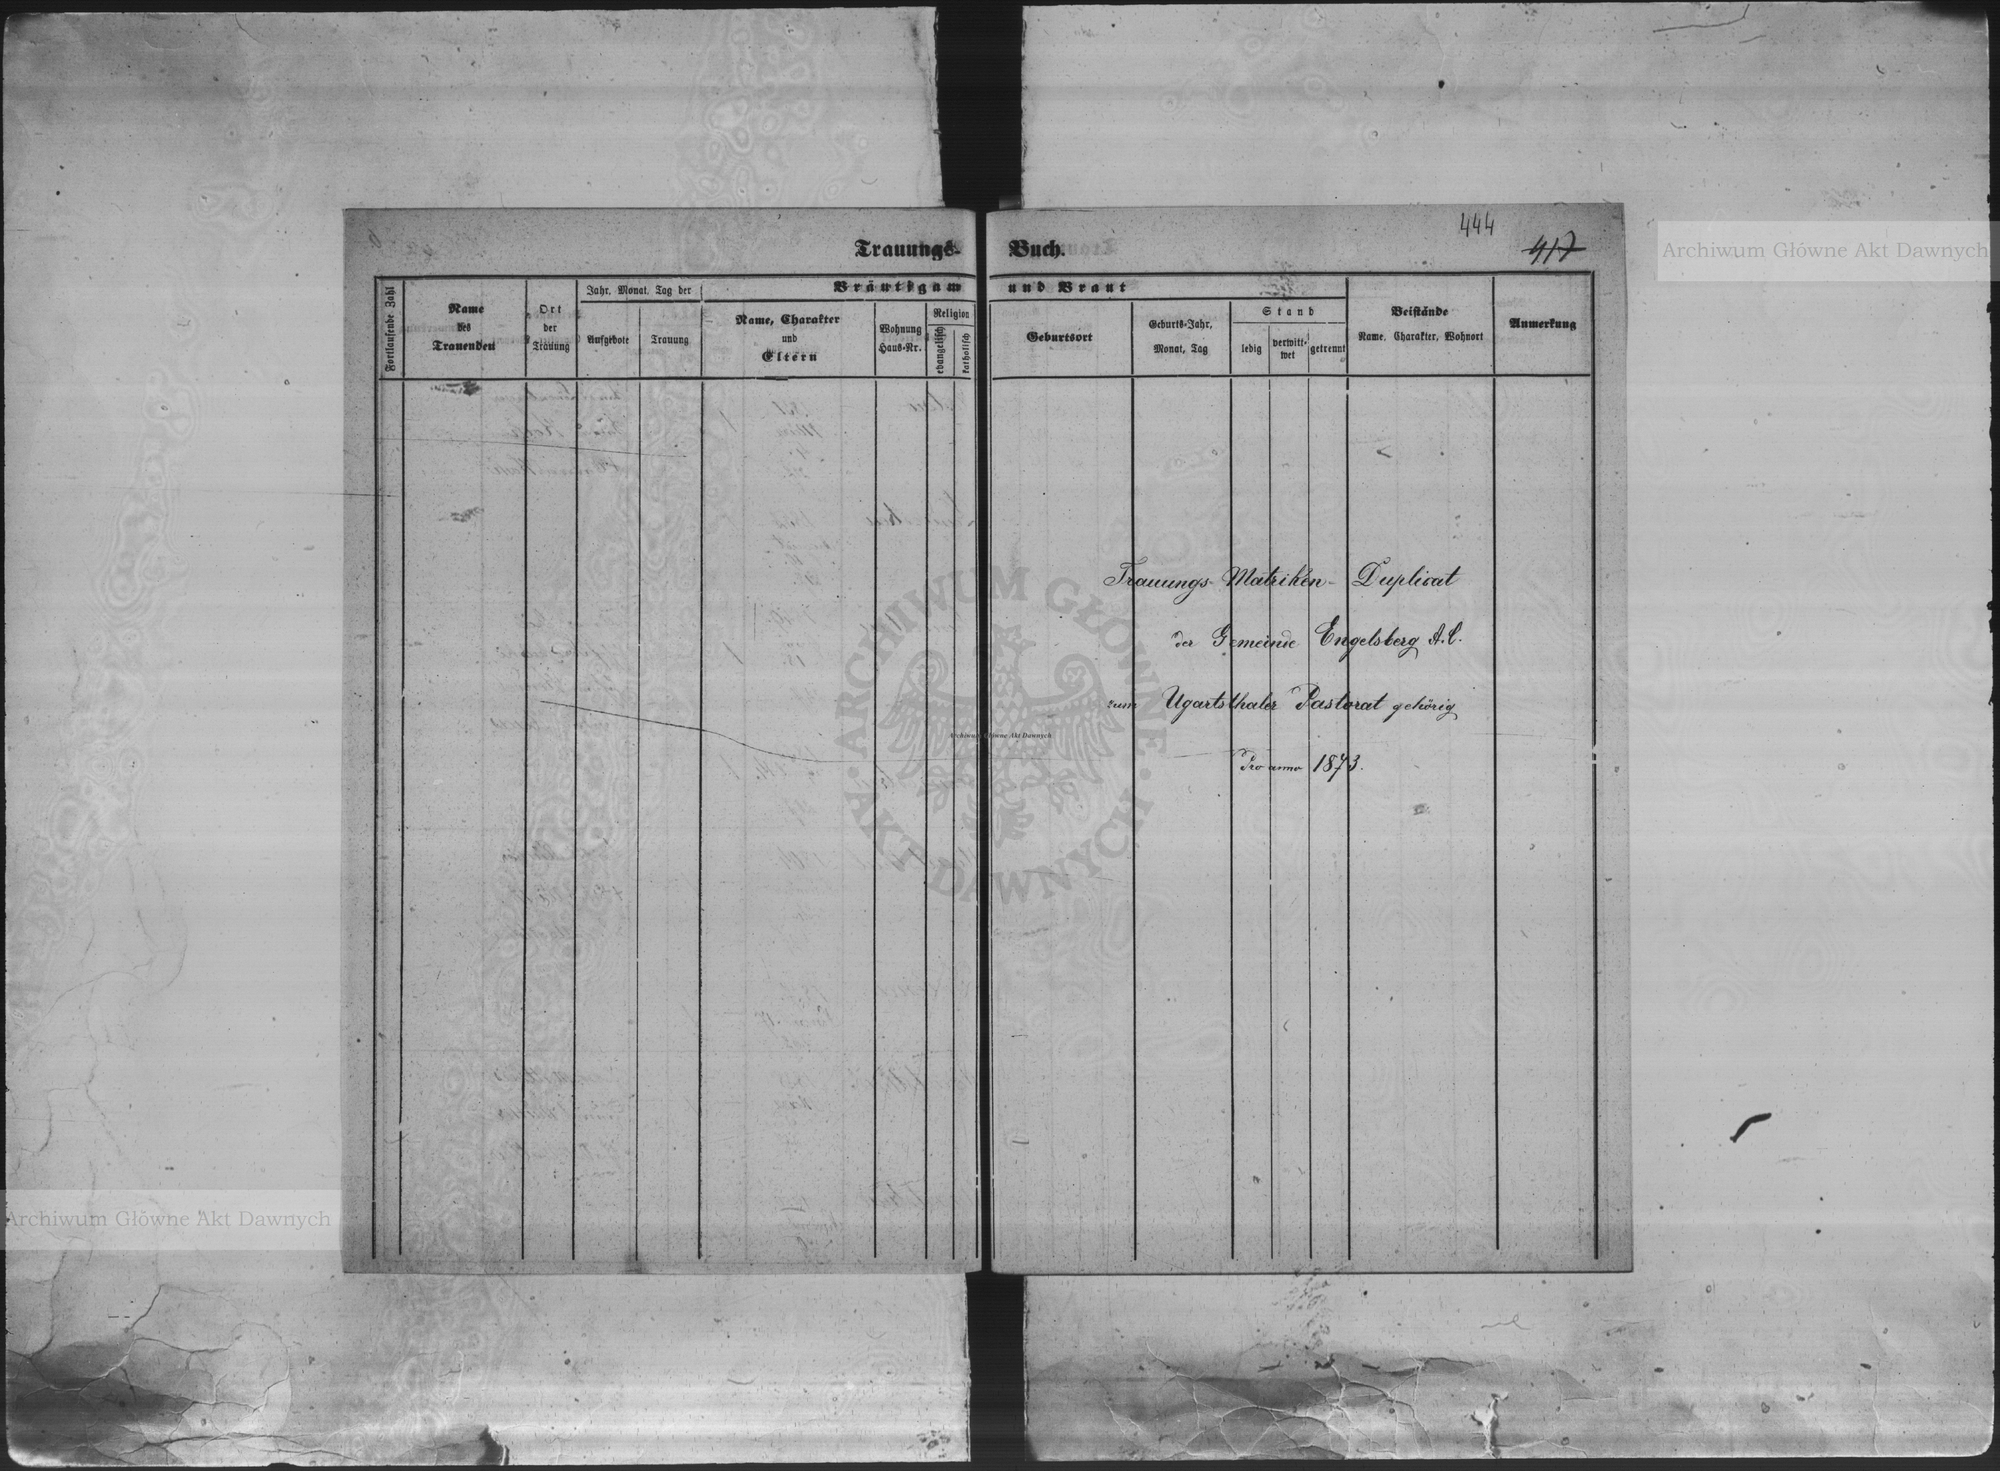 444
417
Trauungs-Buch.
Fortlaufende Zahl
Name
des
Trauenden
Ort
der
Trauung
Jahr, Monat, Tag der
Aufgebote
Trauung
Bräutigam und Braut
Name, Charakter
und
Eltern
Wohnung
Haus-Nr.
Religion
evangelisch
katholisch
Geburtsort
Geburts-Jahr,
Monat, Tag
Stand
ledig
verwitt-
wet
getrennt
Beistände
Name, Charakter, Wohnort
Anmerkung
Trauungs-Matriken-Duplicat
der Gemeinde Engelsberg A.C.
zum Ugartsthaler Pastorat gehörig
Pro anno 1873.
Archiwum Główne Akt Dawnych
ARCHIWUM GŁÓWNE AKT DAWNYCH
Archiwum Główne Akt Dawnych
Archiwum Główne Akt Dawnych